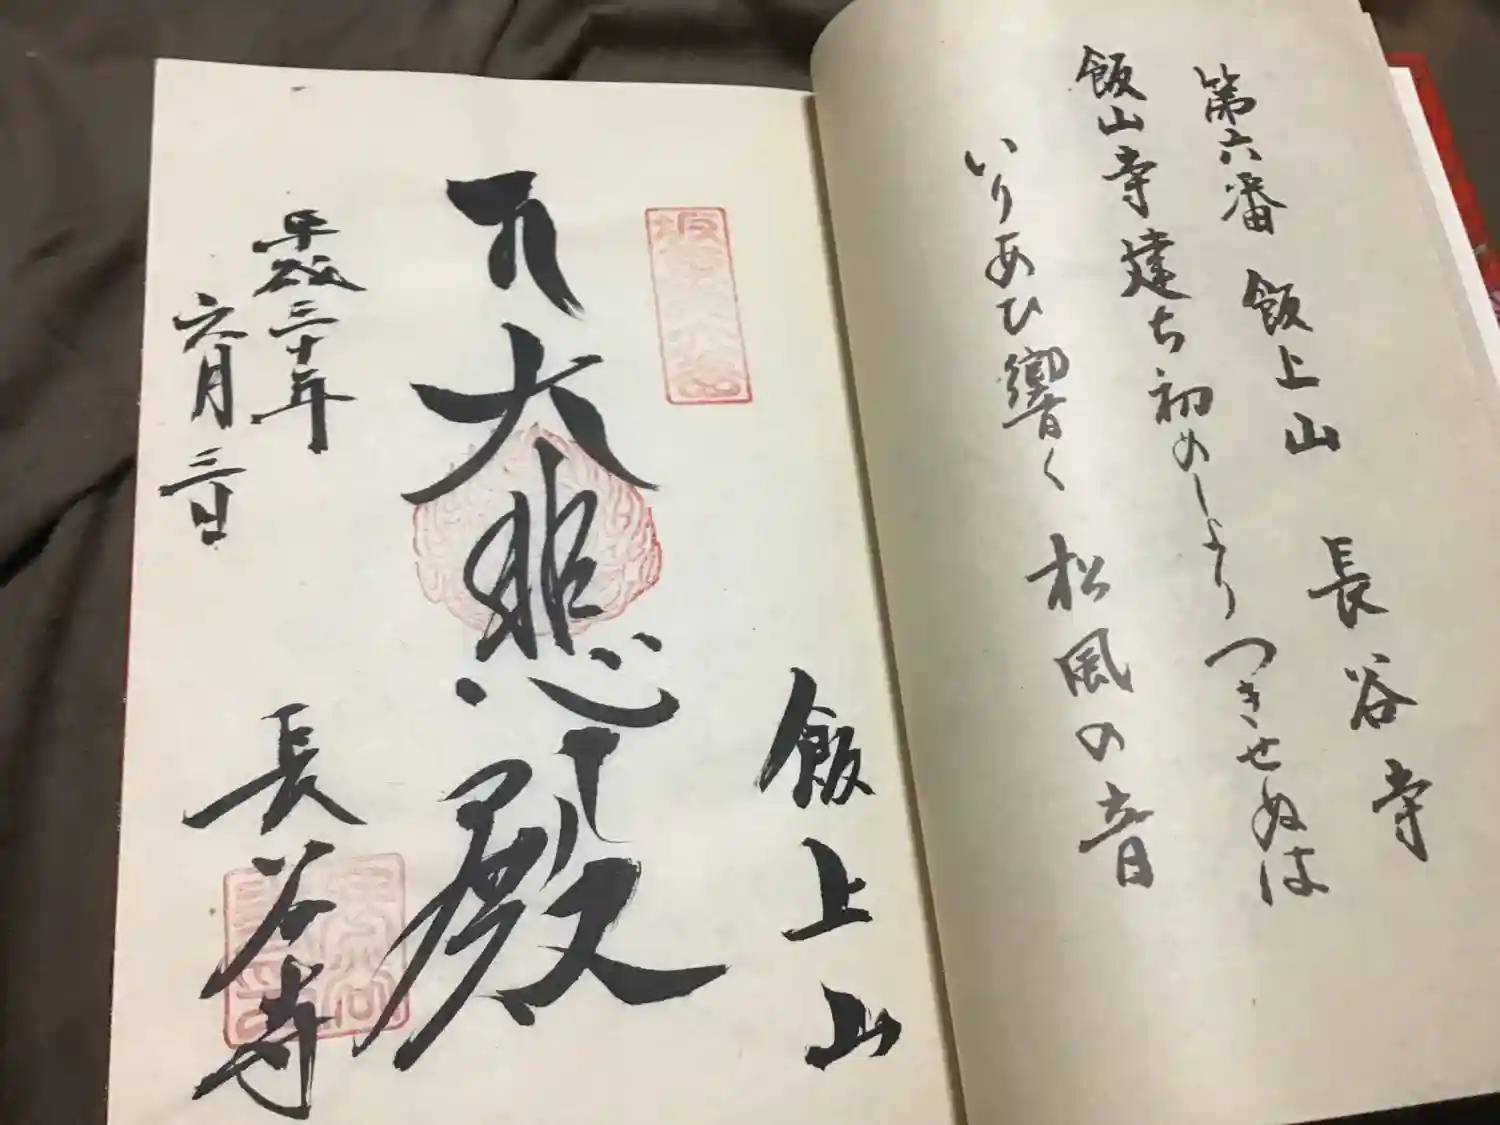 第六番 飯上山 長谷寺
飯山寺建ち初めしよりつきせぬは
いりあひ響く松風の音
飯上山
大悲殿
平成三十年
六月三日
長谷寺